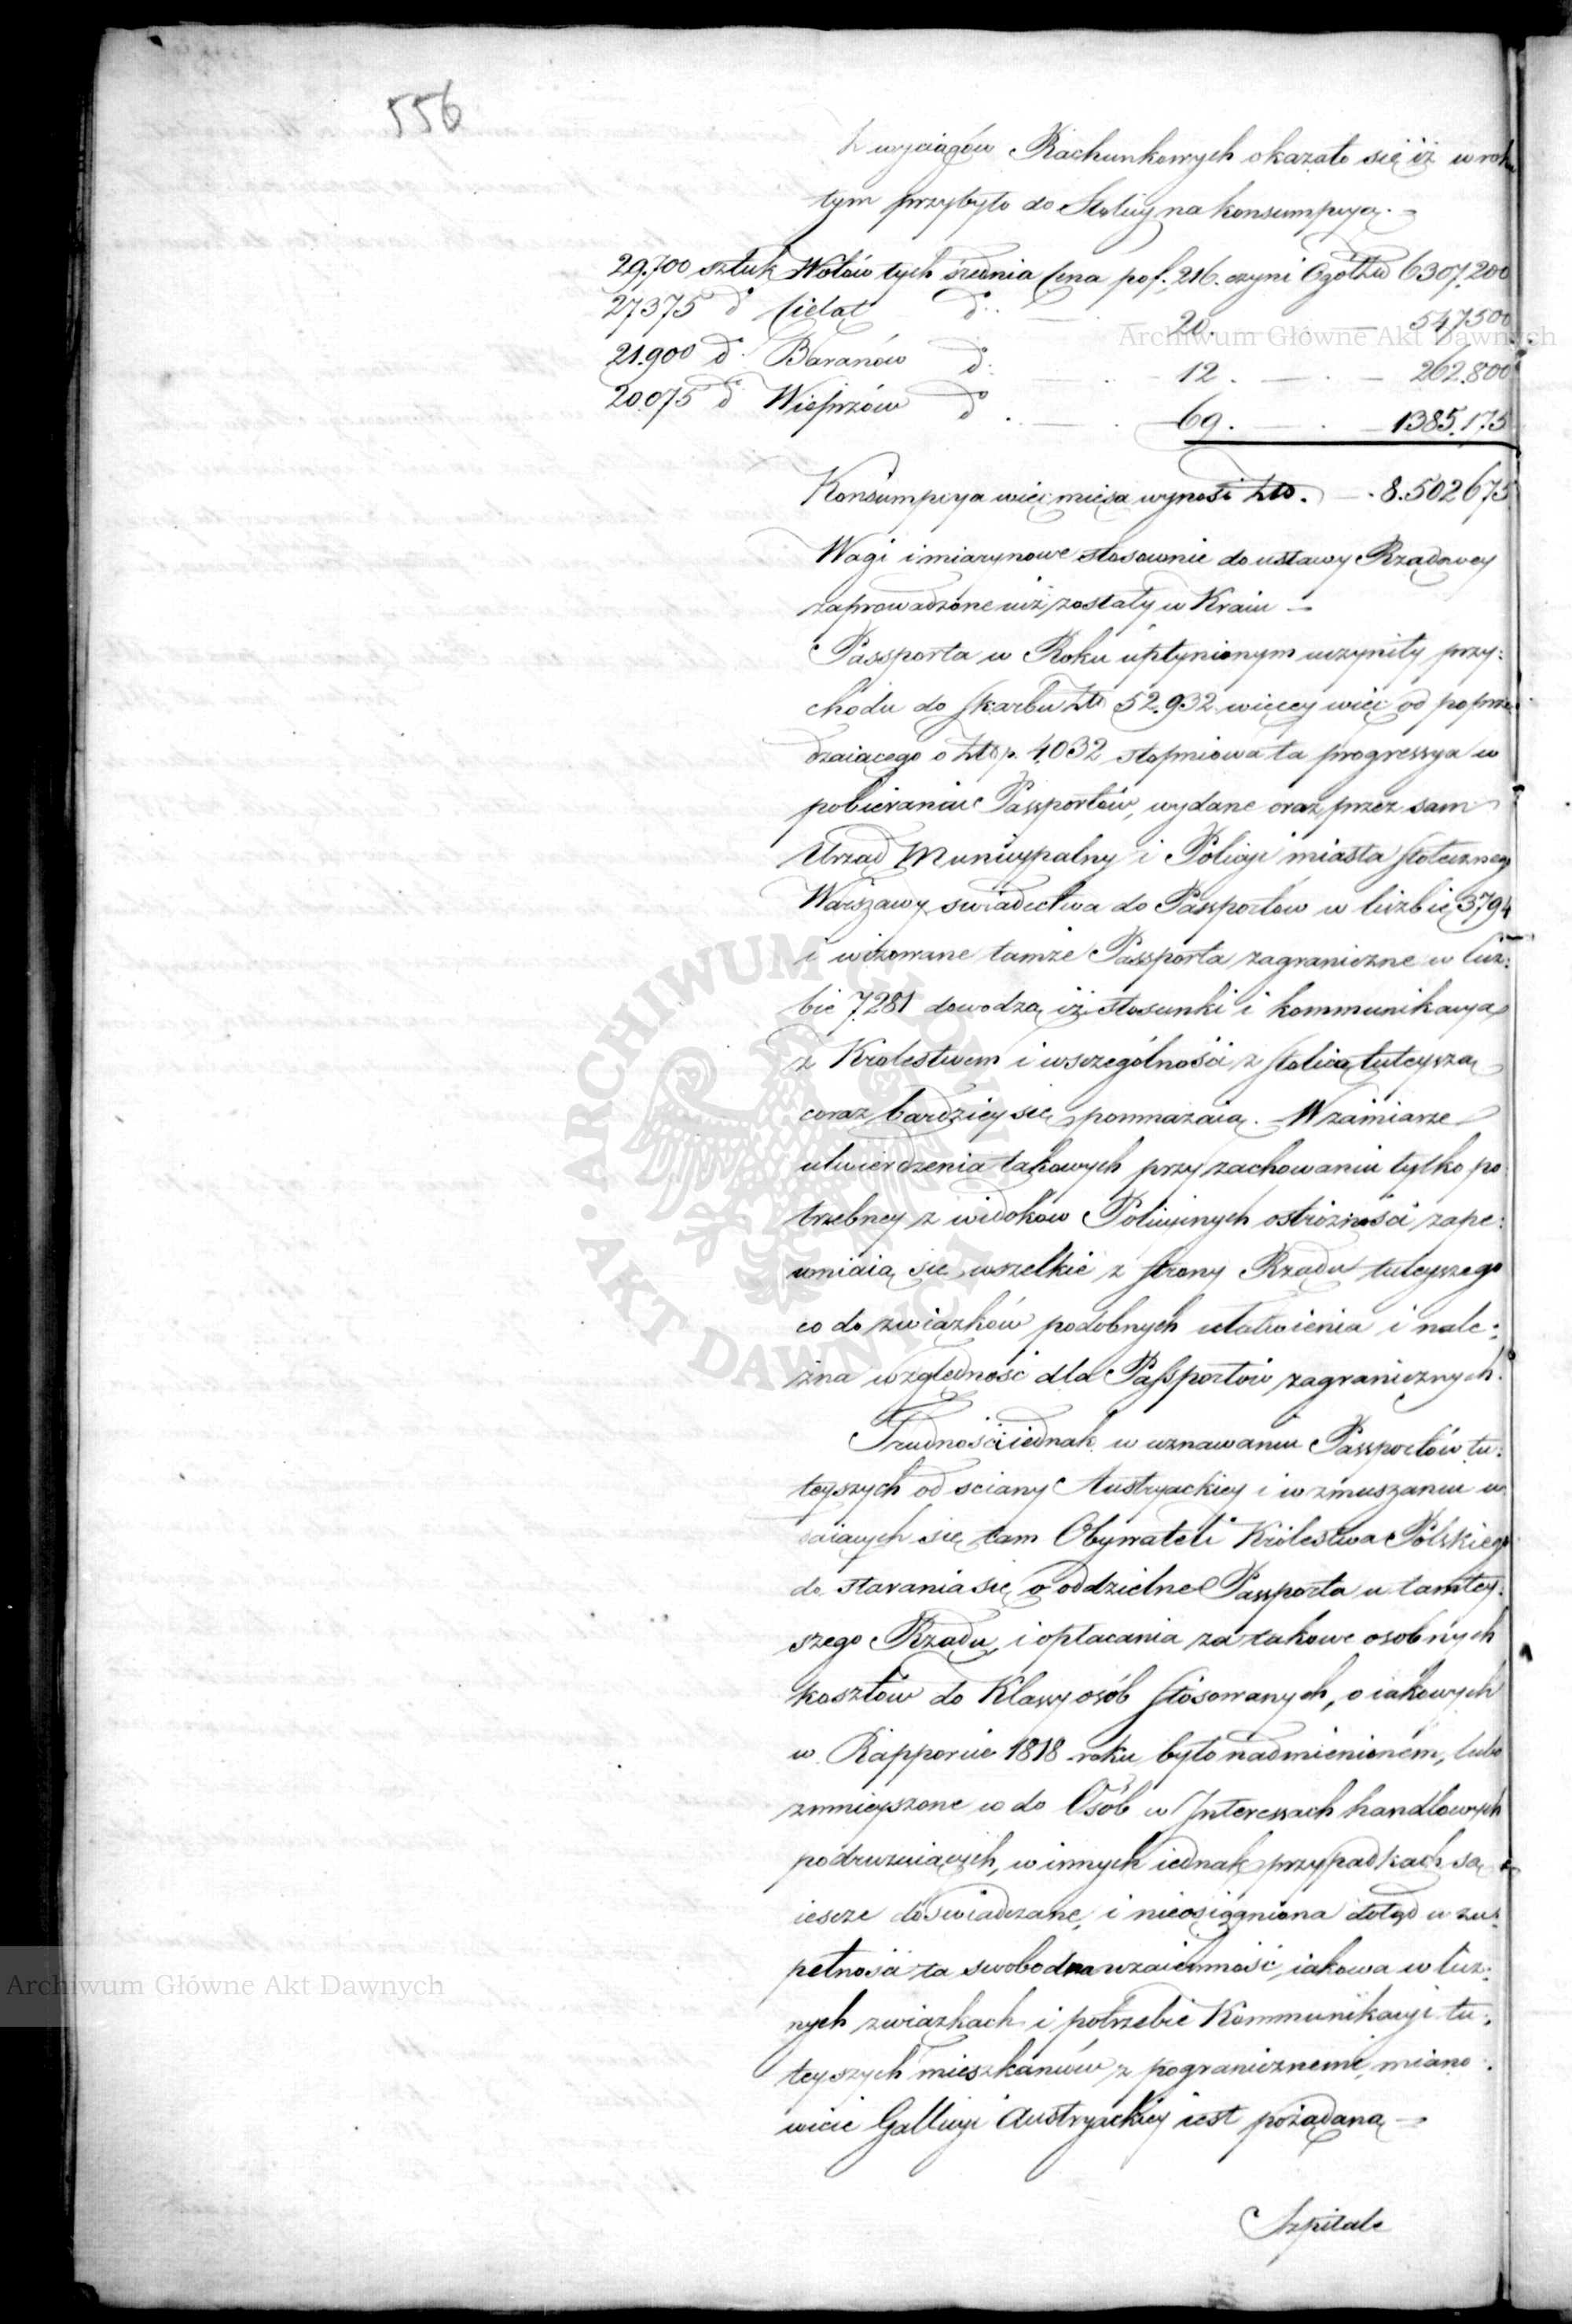 556
Z wyciągów Rachunkowych okazało się iż w roku
tym przybyło do Stolicy na konsumpcyą. –
29.700 sztuk Wołów tych srednia Cena po f. 216. czyni Ogółem 6307.200
27375 d Cieląt d. — 20. — 547500
21.900 d. Baranów d. — 12. — 262.800
20.075 d Wieprzów d. — 69. — 1385.175
Konsumpcya więc mięsa wynosi Złp. — 8.502675
Wagi i miary nowe stosownie do ustawy Rządowey
zaprowadzone iuż zostały w Kraiu –
Passporta w Roku upłynionym uczyniły przy:
chodu do Skarbu Złp 52.932 więcey więc od poprze
dzaiącego o Złp. 4.032 stopniowa ta progressya w
pobieraniu Passportów, wydane oraz przez sam
Urząd Municypalny i Policyi miasta Stołecznego
Warszawy swiadectwa do Passportow w liczbie 3794
i wizowane tamże Passporta zagraniczne w licz:
bie 7.281 dowodzą iż stosunki i kommunikacya
z Krolestwem i wszczególności z Stolicą tuteyszą
coraz bardziey się pomnażaią. W zamiarze
utwierdzenia takowych przy zachowaniu tylko po
trzebney z widoków Policyinych ostrożności zape:
wniaią się wszelkie z strony Rządu tuteyszego
co do związków podobnych ułatwienia i nale:
żna względność dla Passportów zagranicznych.
Trudności iednak w uznawaniu Passportów tu:
teyszych od sciany Austryackiey i w zmuszaniu u
daiących się tam Obywateli Królestwa Polskiego
do starania się o oddzielne Passporta u tamtey:
szego Rządu, i opłacania za takowe osobnych
kosztów do Klassy osób stosowanych, o iakowych
w Rapporcie 1818 roku było nadmienionem, lubo
zmnieyszone co do Osób w Interessach handlowych
podrużuiących, w innych iednak przypadkach są
ieszcze doświadczane, i nieosiągniona dotąd w zu:
pełności ta swobodna wzaiemność, iakowa w licz:
nych związkach i potrzebie Kommunikacyi tu:
teyszych mieszkańców z pogranicznemi, miano:
wicie Gallicyi Austryackiey iest pożądaną –
Szpitale
ARCHIWUM GŁÓWNE AKT DAWNYCH
Archiwum Główne Akt Dawnych
Archiwum Główne Akt Dawnych